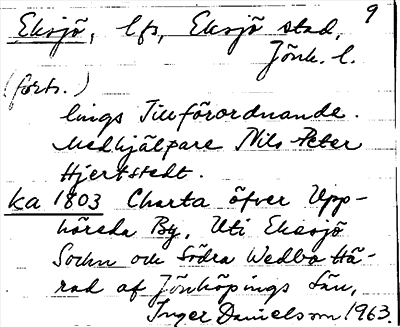 9
Eksjö, lfs, Eksjö stad,
Jönk. l.
(forts.)
lings Tillförordnande.
Medhjälpare Nils Peter
Hjertstedt.
ka 1803 Charta öfver Upp-
hörda By, Uti Eksjö
Sochn och Södra Wedbo Hä-
rad af Jönköpings Län,
Inger Danielsson 1963.